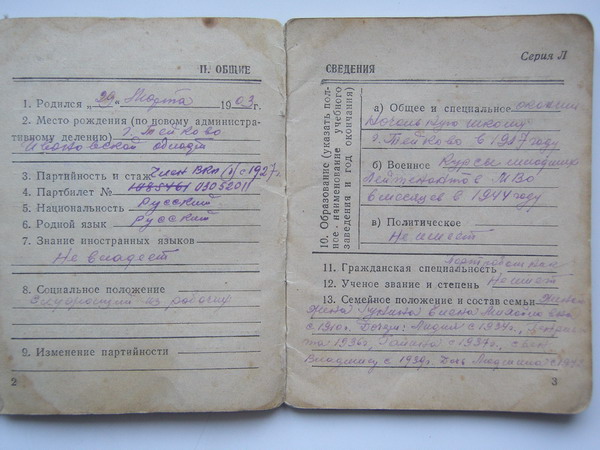 П. ОБЩИЕ
1. Родился „29“ Марта 1903 г.
2. Место рождения (по новому административному делению) г. Тейково
Ивановской области
3. Партийность и стаж Член ВКП(б) с 1927 г.
4. Партбилет № 03052011
5. Национальность Русский
6. Родной язык Русский
7. Знание иностранных языков
Не владеет
8. Социальное положение
из рабочих
9. Изменение партийности
2
Серия Л
СВЕДЕНИЯ
10. Образование (указать полное наименование учебного заведения и год окончания)
а) Общее и специальное
школу
г. Тейково в 1917 году
б) Военное Курсы младших
лейтенантов МВО
6 месяцев в 1944 году
в) Политическое
Не имеет
11. Гражданская специальность
12. Ученое звание и степень Не имеет
13. Семейное положение и состав семьи Женат
Жена
с 1910 г. Дочери: Лидия с 1934 г.,
1936 г., Галина с 1937 г., сын
Владимир с 1939 г. Дочь Людмила с 1942
3